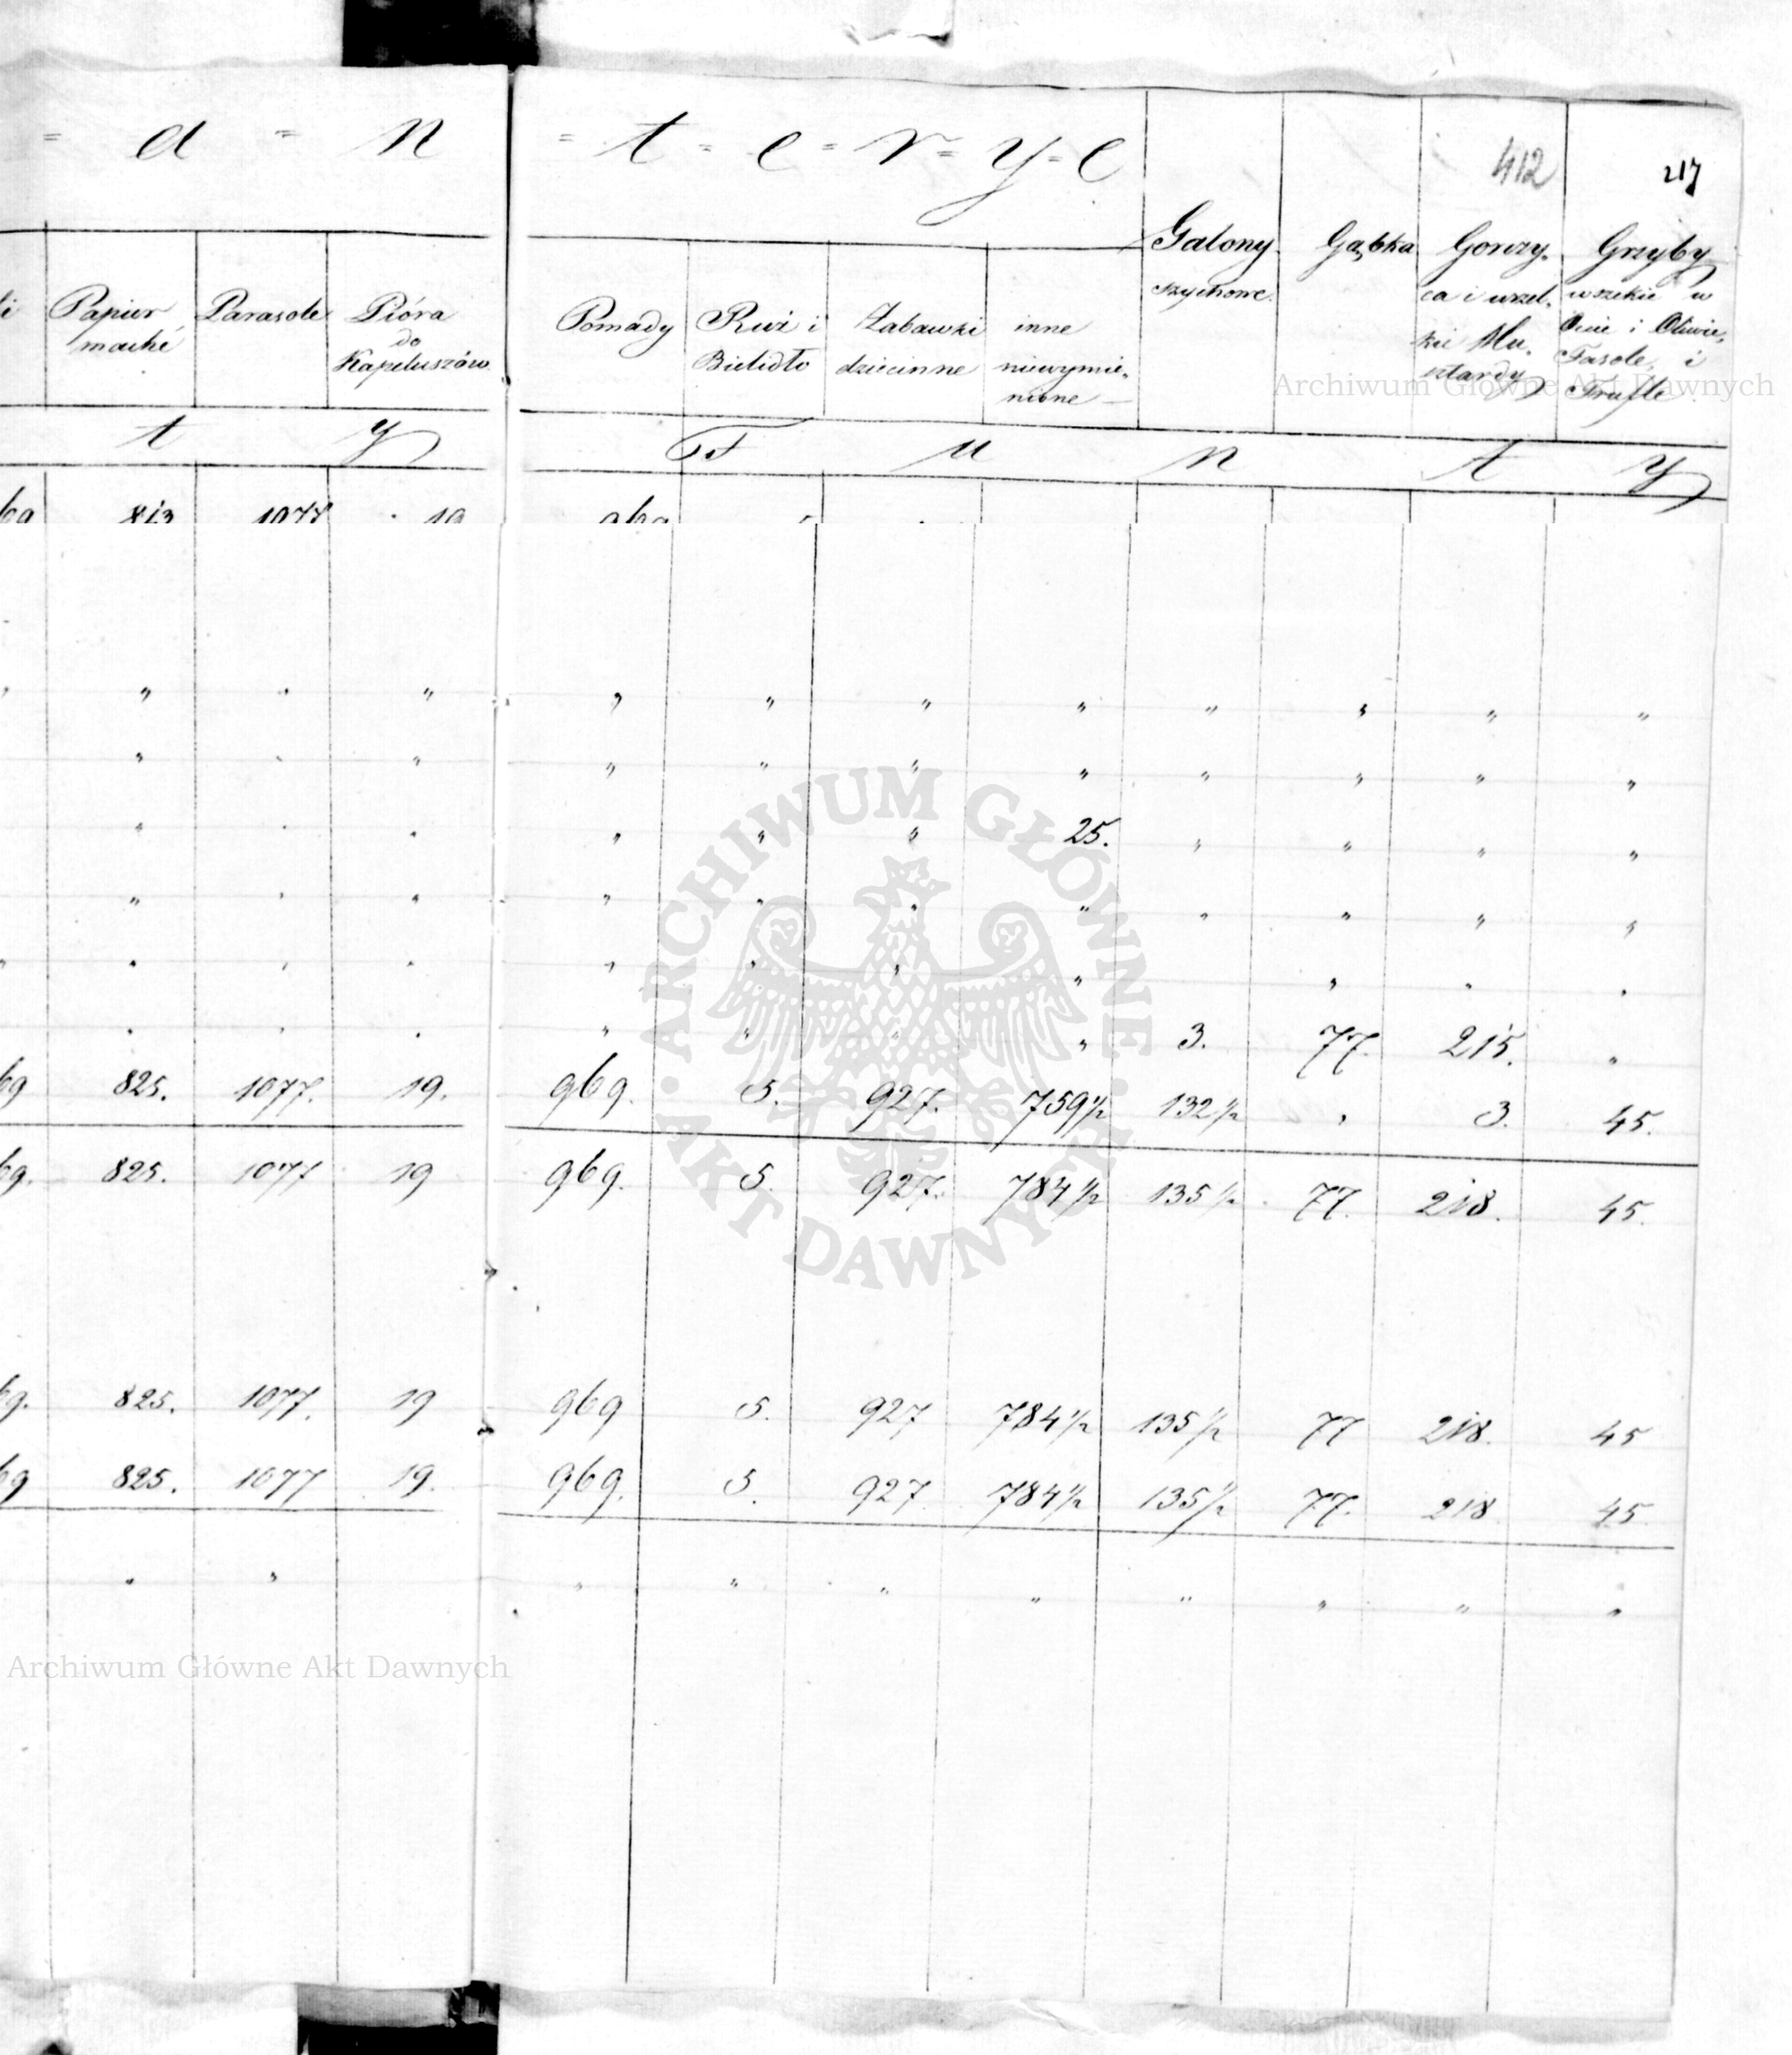 = a = n = t = e = r = y = e
412 217
Papier maché
Parasole
Pióra do Kapeluszów
Pomady
Ruż i Bielidło
Zabawki dziecinne
inne niewymienione
Galony szychowe
Gąbka
Gorczyca i wszelkie Musztardy
Grzyby wszelkie w Occie i Oliwie, Fasole, i Trufle
t y F u n t y
" . " " " " " " " " "
" . " " " " " " " " " "
" . . " " " 25. " " " "
" . . " " " " " " " "
. . . " " " " " . .
. . . " " " " 3. 77. 215. "
69 825. 1077. 19. 969. 5. 927. 759½ 132½ " 3. 45.
69. 825. 1077 19 969. 5. 927. 784½ 135½ 77. 218. 45.
69. 825. 1077. 19 969 5. 927 784½ 135½ 77 218. 45
69 825. 1077 19. 969. 5. 927 784½ 135½ 77. 218 45
" " " " " " " " " "
Archiwum Główne Akt Dawnych
ARCHIWUM GŁÓWNE · AKT DAWNYCH ·
Archiwum Główne Akt Dawnych